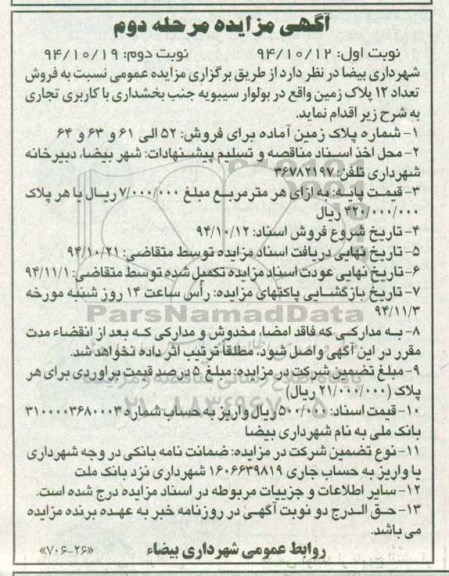 آگهی مزایده مرحله دوم
نوبت اول: ۹۴/۱۰/۱۲ نوبت دوم: ۹۴/۱۰/۱۹
شهرداری بیضا در نظر دارد از طریق برگزاری مزایده عمومی نسبت به فروش
تعداد ۱۲ پلاک زمین واقع در بولوار سیبویه جنب بخشداری با کاربری تجاری
به شرح زیر اقدام نماید.
۱- شماره پلاک زمین آماده برای فروش: ۵۲ الی ۶۱ و ۶۳ و ۶۴
۲- محل اخذ اسناد مناقصه و تسلیم پیشنهادات: شهر بیضا، دبیرخانه
شهرداری تلفن: ۳۶۷۸۲۱۹۷
۳- قیمت پایه: به ازای هر متر مربع مبلغ ۷/۰۰۰/۰۰۰ ریال یا هر پلاک
۴۲۰/۰۰۰/۰۰۰ ریال
۴- تاریخ شروع فروش اسناد: ۹۴/۱۰/۱۲
۵- تاریخ نهایی دریافت اسناد مزایده توسط متقاضی: ۹۴/۱۰/۲۱
۶- تاریخ نهایی عودت اسناد مزایده تکمیل شده توسط متقاضی: ۹۴/۱۱/۱
۷- تاریخ بازگشایی پاکتهای مزایده: رأس ساعت ۱۴ روز شنبه مورخه
۹۴/۱۱/۳
۸- به مدارکی که فاقد امضا، مخدوش و مدارکی که بعد از انقضاء مدت
مقرر در این آگهی واصل شود، مطلقا ترتیب اثر داده نخواهد شد.
۹- مبلغ تضمین شرکت در مزایده: مبلغ ۵ درصد قیمت برآوردی برای هر
پلاک (۲۱/۰۰۰/۰۰۰ ریال)
۱۰- قیمت اسناد: ۵۰۰/۰۰۰ ریال واریز به حساب شماره ۳۱۰۰۰۰۳۶۸۰۰۰۳
بانک ملی به نام شهرداری بیضا
۱۱- نوع تضمین شرکت در مزایده: ضمانت نامه بانکی در وجه شهرداری
یا واریز به حساب جاری ۱۶۰۶۶۳۹۸۱۹ شهرداری نزد بانک ملت
۱۲- سایر اطلاعات و جزییات مربوطه در اسناد مزایده درج شده است.
۱۳- حق الدرج دو نوبت آگهی در روزنامه خبر به عهده برنده مزایده
می باشد.
روابط عمومی شهرداری بیضاء «۷۰۶-۲۶»
ParsNamadData